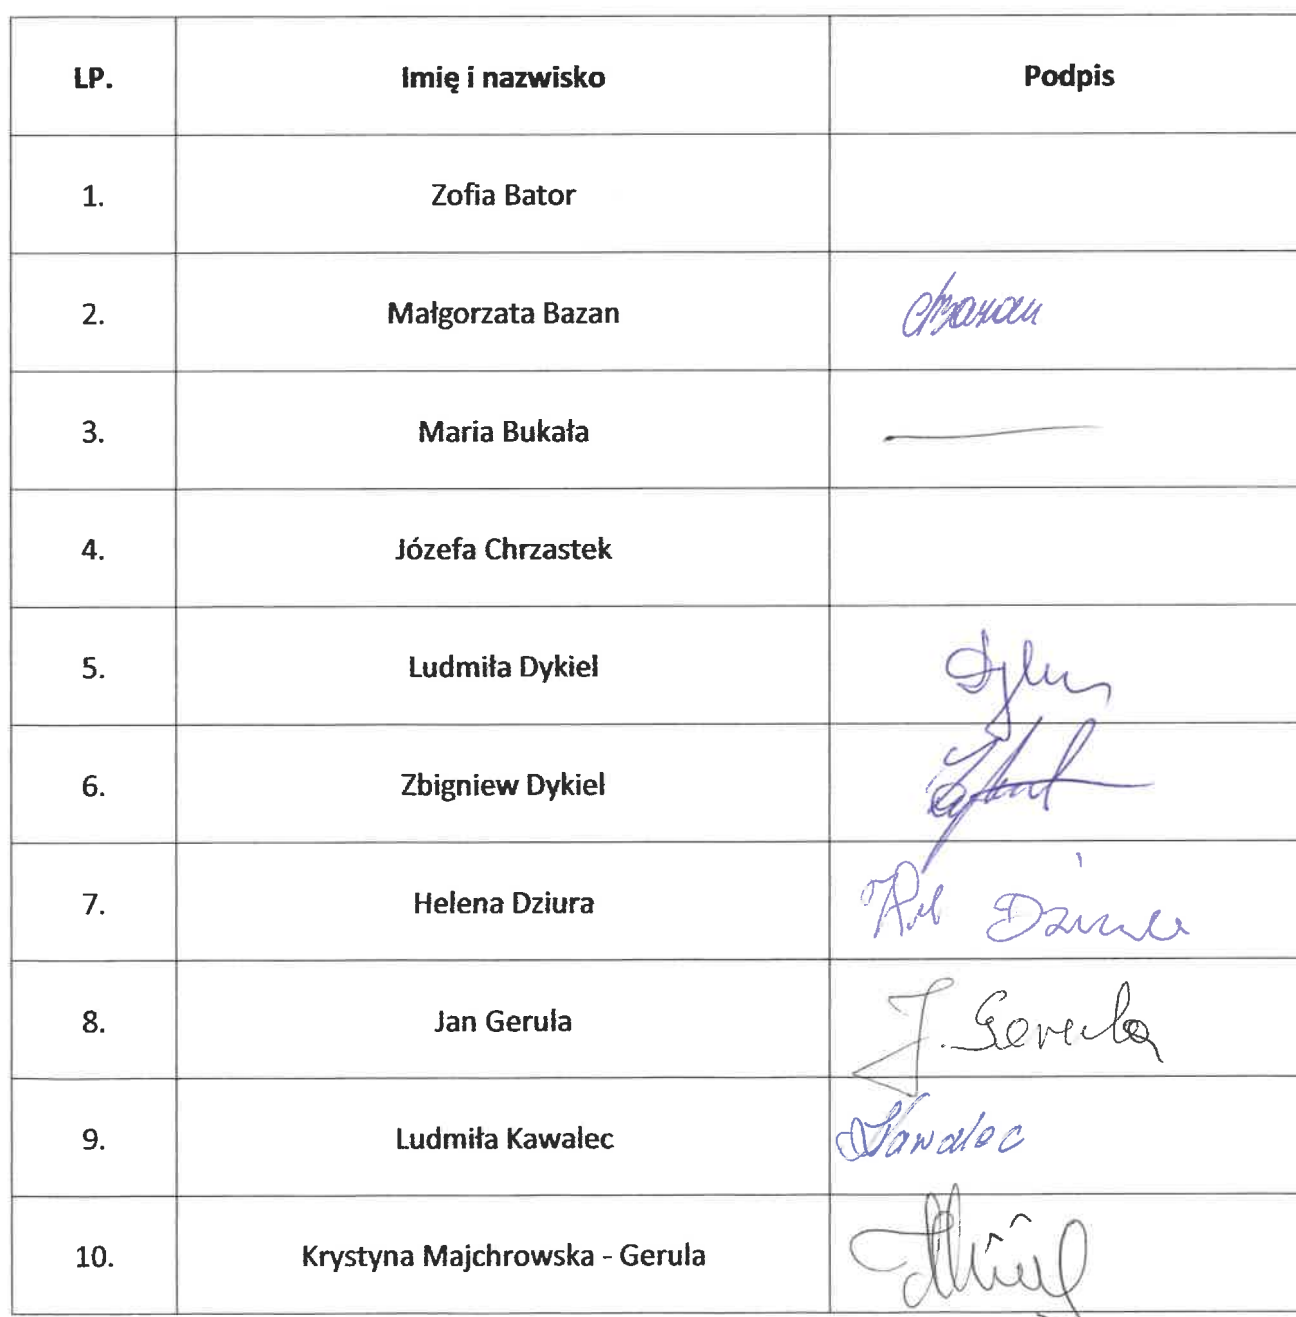 LP. Imię i nazwisko Podpis
1. Zofia Bator
2. Małgorzata Bazan
3. Maria Bukała
4. Józefa Chrzastek
5. Ludmiła Dykiel
6. Zbigniew Dykiel
7. Helena Dziura
8. Jan Gerula J. Gerula
9. Ludmiła Kawalec Kawalec
10. Krystyna Majchrowska - Gerula